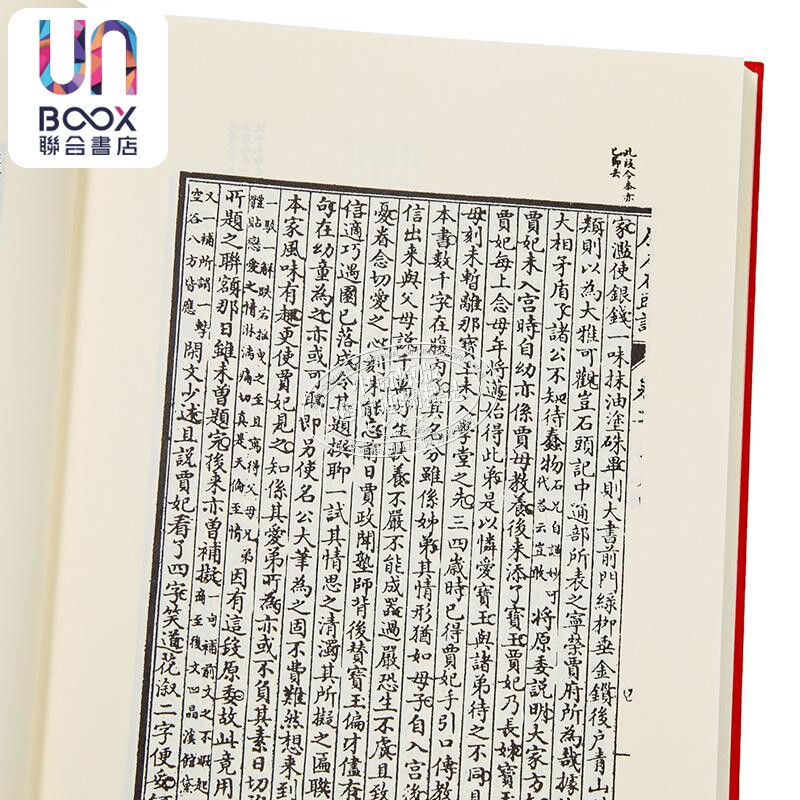 UN
BOOX
聯合書店
此段今本亦
已節去
家濫使銀錢一味抹油塗硃畢則大書前門綠柳垂金鎖後戶青山
類則以為大雅可觀豈石頭記中通部所表之寧榮賈府所為哉據
大相矛盾了諸公不知待蠢物石兄自謙妙可代荅云豈敢將原委說明大家方
賈妃未入宮時自幼亦係賈母教養後来添了寶玉賈妃乃長姊寶玉
賈妃每上念母年將邁始得此弟是以憐愛寶玉與諸弟待之不同且
母刻未暫離那寶玉未入學堂之先三四歲時已得賈妃手引口傳教
本書數千字在腹内了其名分雖係姊弟其情形猶如母子自入宮後
信出来與父母說千萬好生扶養不嚴不能成器過嚴恐生不虞且致
憂眷念切愛之心刻未能忘前日賈政聞塾師背後贊寶玉偏才儘有
信適巧遇園已落成令其題撰聊一試其情思之清濁其所擬之匾聯
句在幼童為之亦或可取即另使名公大筆為之固不費難然想来到
本家風味有趣更使賈妃見之知係其愛弟所為亦或不負其素日切
一駁一解跌宕搖曳之至且寫得父母兄弟
體貼戀愛之情淋漓痛切真是天倫至情
因有這段原委故此竟用
所題之聯額那日雖未曾題完後来亦曾補擬
一句補前文之不暇起
至後文凹晶溪館黛
又一補所謂一擊
空谷八方皆應
閒文少述且說賈妃看了四字笑道花漵二字便妥